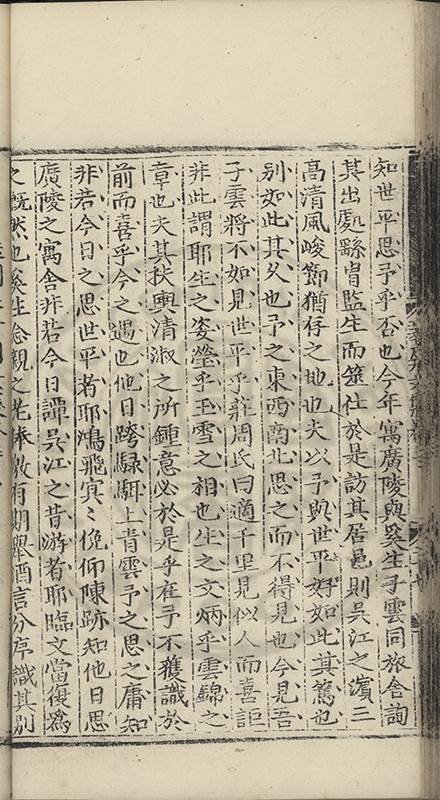 知世平思予乎否也今年寓廣陵與奚生子雲同旅舍詢
其出處繇胄監生而筮仕於是訪其居邑則吳江之濱三
高清風峻節猶存之地也夫以予與世平好如此其篤也
別如此其久也予之東西南北思之而不得見也今見吾
子雲將不如見世平乎莊周氏曰適千里見似人而喜詎
非此謂耶生之姿瑩乎玉雪之相也生之文炳乎雲錦之
章也夫其扶輿清淑之所鍾意必於是乎在予不獲識於
前而喜乎今之遇也他日跨騄駬上青雲予之思之庸知
非若今日之思世平者耶鴻飛冥〻俛仰陳跡知他日思
廣陵之寓舍非若今日譚吳江之昔游者耶臨文當復為
之慨然也奚生念親之老捧檄有期舉酒言分序識其別